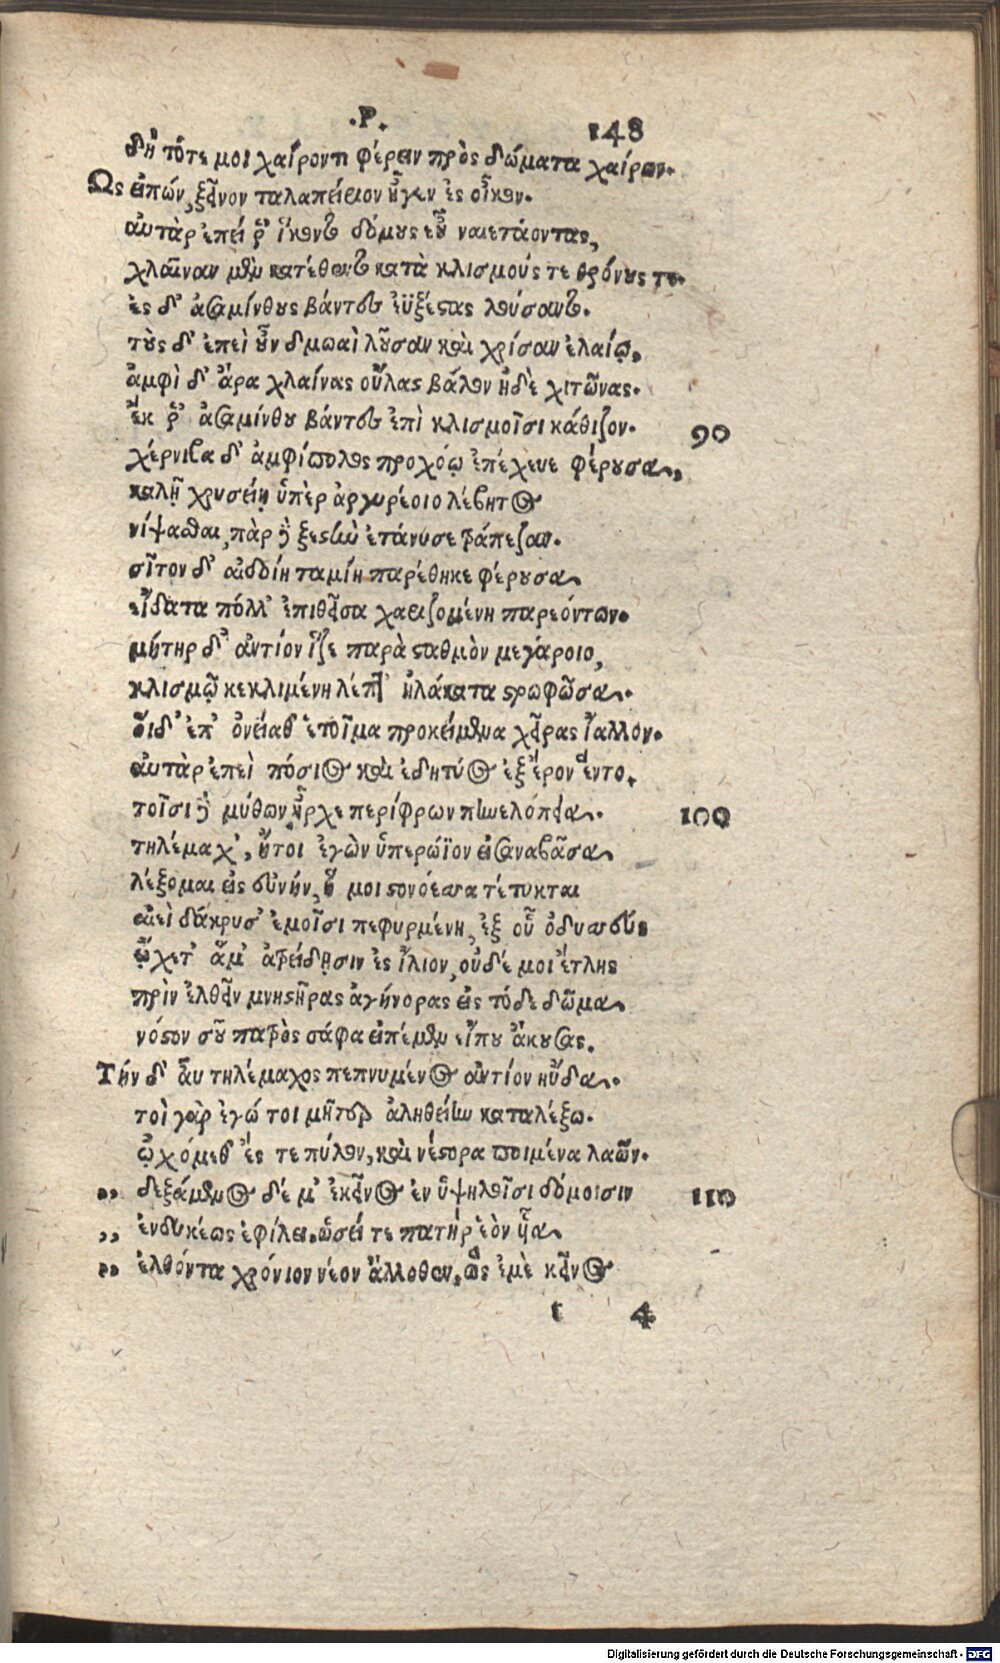 .Ρ. 148
δὴ τότε μοι χαίροντι φέρειν πρὸς δώματα χαίρων.
Ως εἰπών, ξεῖνον ταλαπείριον ἦγεν ἐς οἶκον.
αὐτὰρ ἐπεί ῥ' ἵκοντο δόμους εὖ ναιετάοντας,
χλαῖναν μὲν κατέθεντο κατὰ κλισμούς τε θρόνους τε.
ἐς δ' ἀσαμίνθους βάντες ἐϋξέστας λούσαντο.
τοὺς δ' ἐπεὶ οὖν δμωαὶ λοῦσαν καὶ χρίσαν ἐλαίῳ,
ἀμφὶ δ' ἄρα χλαίνας οὔλας βάλον ἠδὲ χιτῶνας.
ἔκ ῥ' ἀσαμίνθου βάντες ἐπὶ κλισμοῖσι κάθιζον. 90
χέρνιβα δ' ἀμφίπολος προχόῳ ἐπέχευε φέρουσα,
καλῇ χρυσείῃ ὑπὲρ ἀργυρέοιο λέβητος
νίψασθαι, πὰρ δὲ ξεστὴν ἐτάνυσε τράπεζαν.
σῖτον δ' αἰδοίη ταμίη παρέθηκε φέρουσα
εἴδατα πόλλ' ἐπιθεῖσα χαριζομένη παρεόντων.
μήτηρ δ' ἀντίον ἷζε παρὰ σταθμὸν μεγάροιο,
κλισμῷ κεκλιμένη λέπτ' ἠλάκατα στρωφῶσα.
οἵδ' ἐπ' ὀνείαθ' ἑτοῖμα προκείμενα χεῖρας ἴαλλον.
αὐτὰρ ἐπεὶ πόσιος καὶ ἐδητύος ἐξ ἔρον ἕντο.
τοῖσι δὲ μύθων ἦρχε περίφρων πηνελόπεια. 100
τηλέμαχ', ἤτοι ἐγὼν ὑπερώϊον εἰσαναβᾶσα
λέξομαι εἰς εὐνήν, ἥ μοι στονόεσσα τέτυκται
αἰεὶ δάκρυσ' ἐμοῖσι πεφυρμένη, ἐξ οὗ ὀδυσσεὺς
ᾤχετ' ἅμ' ἀτρείδῃσιν ἐς ἴλιον, οὐδέ μοι ἔτλης
πρὶν ἐλθεῖν μνηστῆρας ἀγήνορας εἰς τόδε δῶμα
νόστον σοῦ πατρὸς σάφα εἰπέμεν εἴ που ἄκουσας.
Τήν δ' αὖ τηλέμαχος πεπνυμένος ἀντίον ηὔδα.
τοὶ γὰρ ἐγώ τοι μῆτερ ἀληθείην καταλέξω.
ᾠχόμεθ' ἔς τε πύλον, καὶ νέστορα ποιμένα λαῶν.
,, δεξάμενος δέ μ' ἐκεῖνος ἐν ὑψηλοῖσι δόμοισιν 110
,, ἐνδυκέως ἐφίλει. ὡσεί τε πατὴρ ἑὸν υἷα
,, ἐλθόντα χρόνιον νέον ἄλλοθεν, ὣς ἐμὲ κεῖνος
t 4
Digitalisierung gefördert durch die Deutsche Forschungsgemeinschaft - DFG